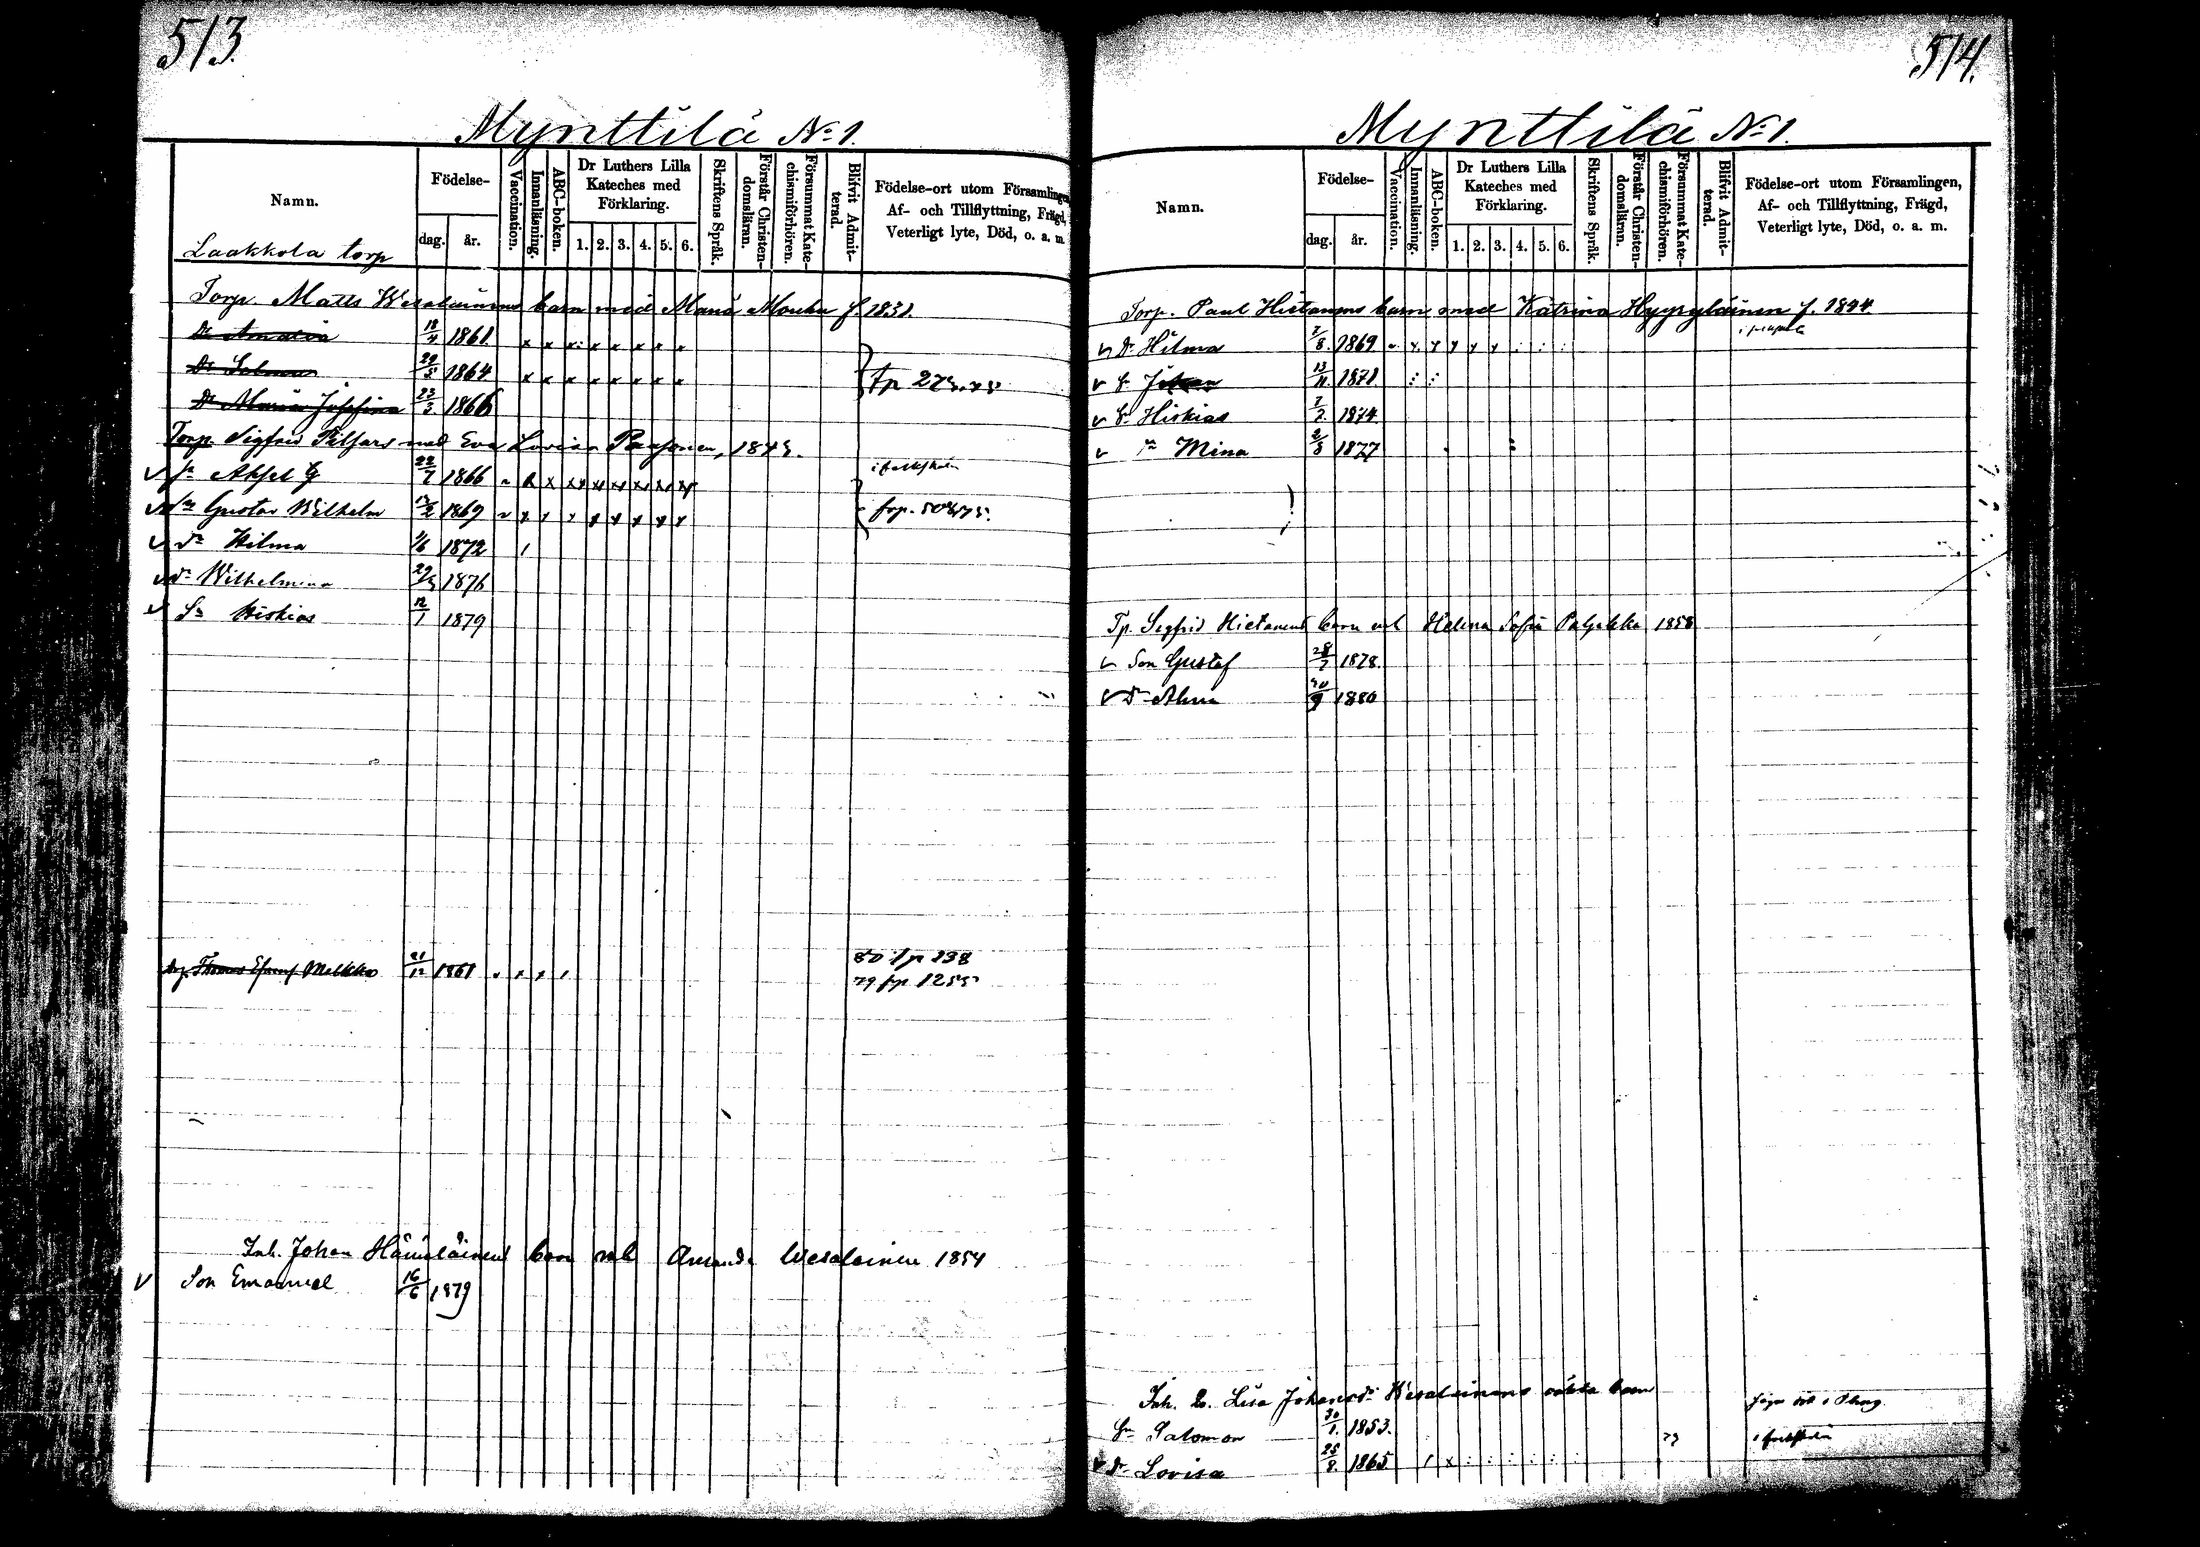 513.
Mynttilä No 1.
Namn.
Födelse-
dag.
år.
Vaccination.
Innanläsning.
ABC-boken.
Dr Luthers Lilla Kateches med Förklaring.
1. 2. 3. 4. 5. 6.
Skriftens Språk.
Förstår Christendomsläran.
Försummat Katechismiförhören.
Blifvit Admitterad.
Födelse-ort utom Församlingen,
Af- och Tillflyttning, Frägd,
Veterligt lyte, Död, o. a. m.
Laakkola torp
Torp. Matts Wesalainens barn med Maria Mouhu f. 1831.
Dr Amalia 18/4 1861. x x x x x x x x
Dr Salma 1864 x x x x x x x x
Dr Maria Josefina 23/3 1866
Torp Sigfrid med Eva Lovisa
Sn Aksel 22/7 1866
Sn Gustav Wilhelm 1869
dr Hilma 1872
dr Wilhelmina 1876
Sn Hiskias 12/1 1879
Thomas Melkko 21/12 1861
80 fp 138
79 fp 1255
Inh. Johan barn med Amanda Wesalainen 1854
Son Emanuel 16/6 1879
514.
Mynttilä No 1.
Namn.
Födelse-
dag.
år.
Vaccination.
Innanläsning.
ABC-boken.
Dr Luthers Lilla Kateches med Förklaring.
1. 2. 3. 4. 5. 6.
Skriftens Språk.
Förstår Christendomsläran.
Försummat Katechismiförhören.
Blifvit Admitterad.
Födelse-ort utom Församlingen,
Af- och Tillflyttning, Frägd,
Veterligt lyte, Död, o. a. m.
Torp. Paul Hietanens barn med Katrina Hyyryläinen f. 1844
Dr Hilma 7/8. 1869
Sn Johan 13/11. 1871.
Sn Hiskias 7/7. 1874.
Dr Mina 2/3 1877
Tp. Sigfrid Hietanens barn med Helena Sofia 1858
Son Gustaf 28/7 1878.
Dr Alma 1880
Inh. Lisa Johansdr Wesalainens oäkta barn
Sn Salomon 30/1. 1853. 79
dr Lovisa 25/8. 1865.